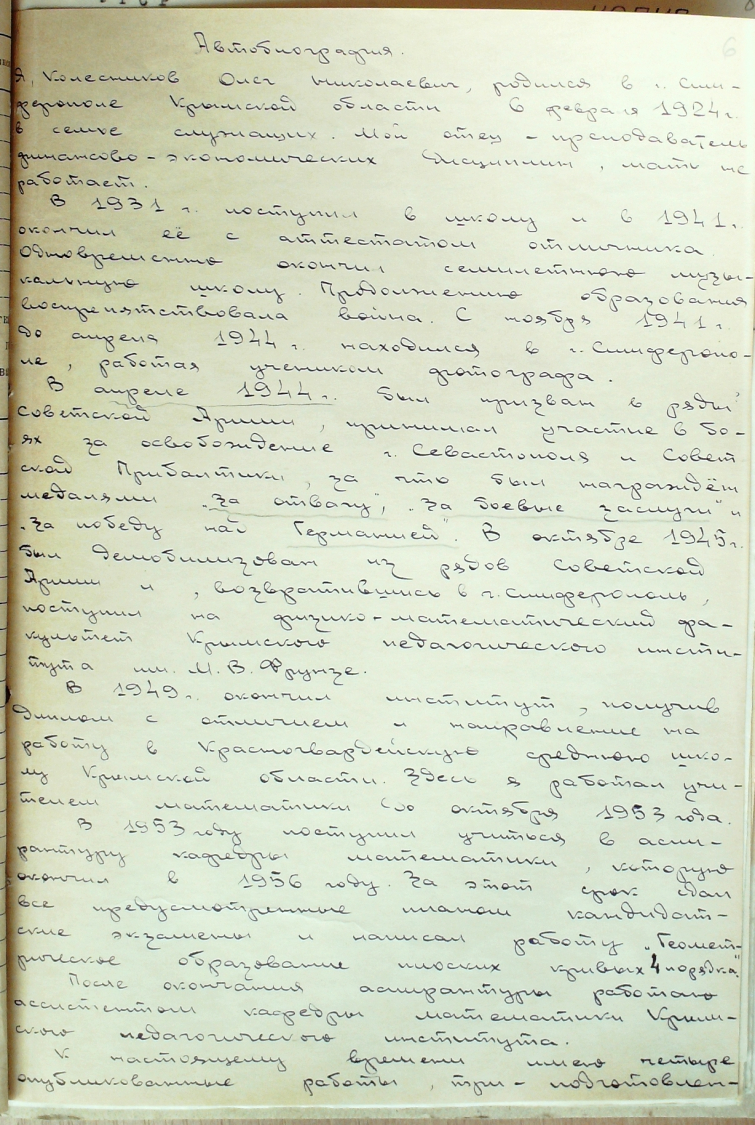 6
Автобиография.
Я, Колесников Олег Николаевич, родился в г. Сим-
ферополе Крымской области 6 февраля 1924 г.
в семье служащих. Мой отец - преподаватель
финансово-экономических дисциплин, мать не
работает.
В 1931 г. поступил в школу и в 1941 г.
окончил её с аттестатом отличника.
Одновременно окончил семилетнюю музы-
кальную школу. Продолжению образования
воспрепятствовала война. С ноября 1941 г.
до апреля 1944 г. находился в г. Симферопо-
ле, работая учеником фотографа.
В апреле 1944 г. был призван в ряды
Советской Армии, принимал участие в бо-
ях за освобождение г. Севастополя и Совет
ской Прибалтики, за что был награждён
медалями „За отвагу", „За боевые заслуги" и
„За победу над Германией". В октябре 1945 г.
был демобилизован из рядов Советской
Армии и, возвратившись в г. Симферополь,
поступил на физико-математический фа-
культет Крымского педагогического инсти-
тута им. М. В. Фрунзе.
В 1949 г. окончил институт, получив
диплом с отличием и направление на
работу в Красногвардейскую среднюю шко-
лу Крымской области. Здесь я работал учи-
телем математики до октября 1953 года.
В 1953 году поступил учиться в аспи-
рантуру кафедры математики, которую
окончил в 1956 году. За этот срок сдал
все предусмотренные планом кандидат-
ские экзамены и написал работу „Геомет-
рическое образование плоских кривых 4 порядка"
После окончания аспирантуры работаю
ассистентом кафедры математики Крым-
ского педагогического института.
К настоящему времени имею четыре
опубликованные работы, три - подготовлен-